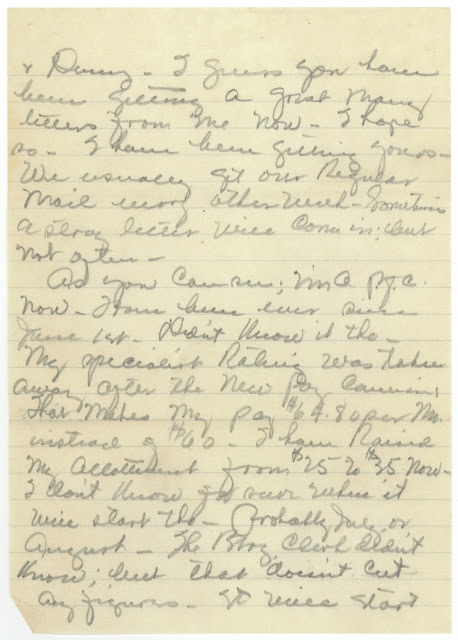 & Danny - I guess you have
been getting a great many
letters from me now - I hope
so - I have been getting yours -
We usually get our Regular
Mail every other week - Sometimes
a stray letter will come in; but
not often -
As you can see, I'm a Pfc.
now - I have been ever since
June 1st - Didn't know it tho -
My specialist Rating was taken
away after the New Pay came in;
That makes my pay $64.80 per Mo.
instead of $60 - I have Raised
my allotment from $25 to $35 now -
I don't know for sure when it
will start tho - Probably July or
August - The Btry. Clerk didn't
know; but that doesn't cut
any figures - It will start